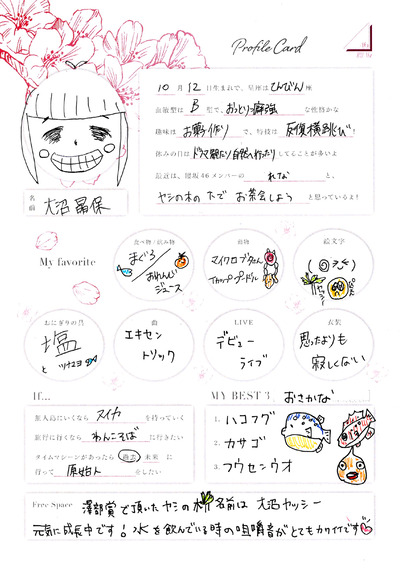 Profile Card
10月12日生まれで、星座はてんびん座
血液型はB型で、おっとり癇強な性格かな
趣味はお菓子作りで、特技は反復横跳び!
休みの日はドラマ観たり自然へ行ったりしてることが多いよ
最近は、櫻坂46メンバーのれなと、
ヤシの木の下でお茶会しようと思っているよ!
名前 大沼晶保
My favorite
食べ物/飲み物
まぐろ/おれんじジュース
動物
マイクロブタさん
Tカッププードル
絵文字
おにぎりの具
塩
とツナマヨ
曲
エキセントリック
LIVE
デビューライブ
衣装
思ったよりも寂しくない
If...
無人島にいくならスイカを持っていく
旅行に行くならわんこそばに行きたい
タイムマシーンがあったら過去・未来に
行って原始人をしたい
MY BEST 3 おさかな
1. ハコフグ
2. カサゴ
3. フウセンウオ
Free Space
澤部賞で頂いたヤシの木 名前は大沼ヤッシー
元気に成長中です!水を飲んでいる時の咀嚼音がとてもカワイイです